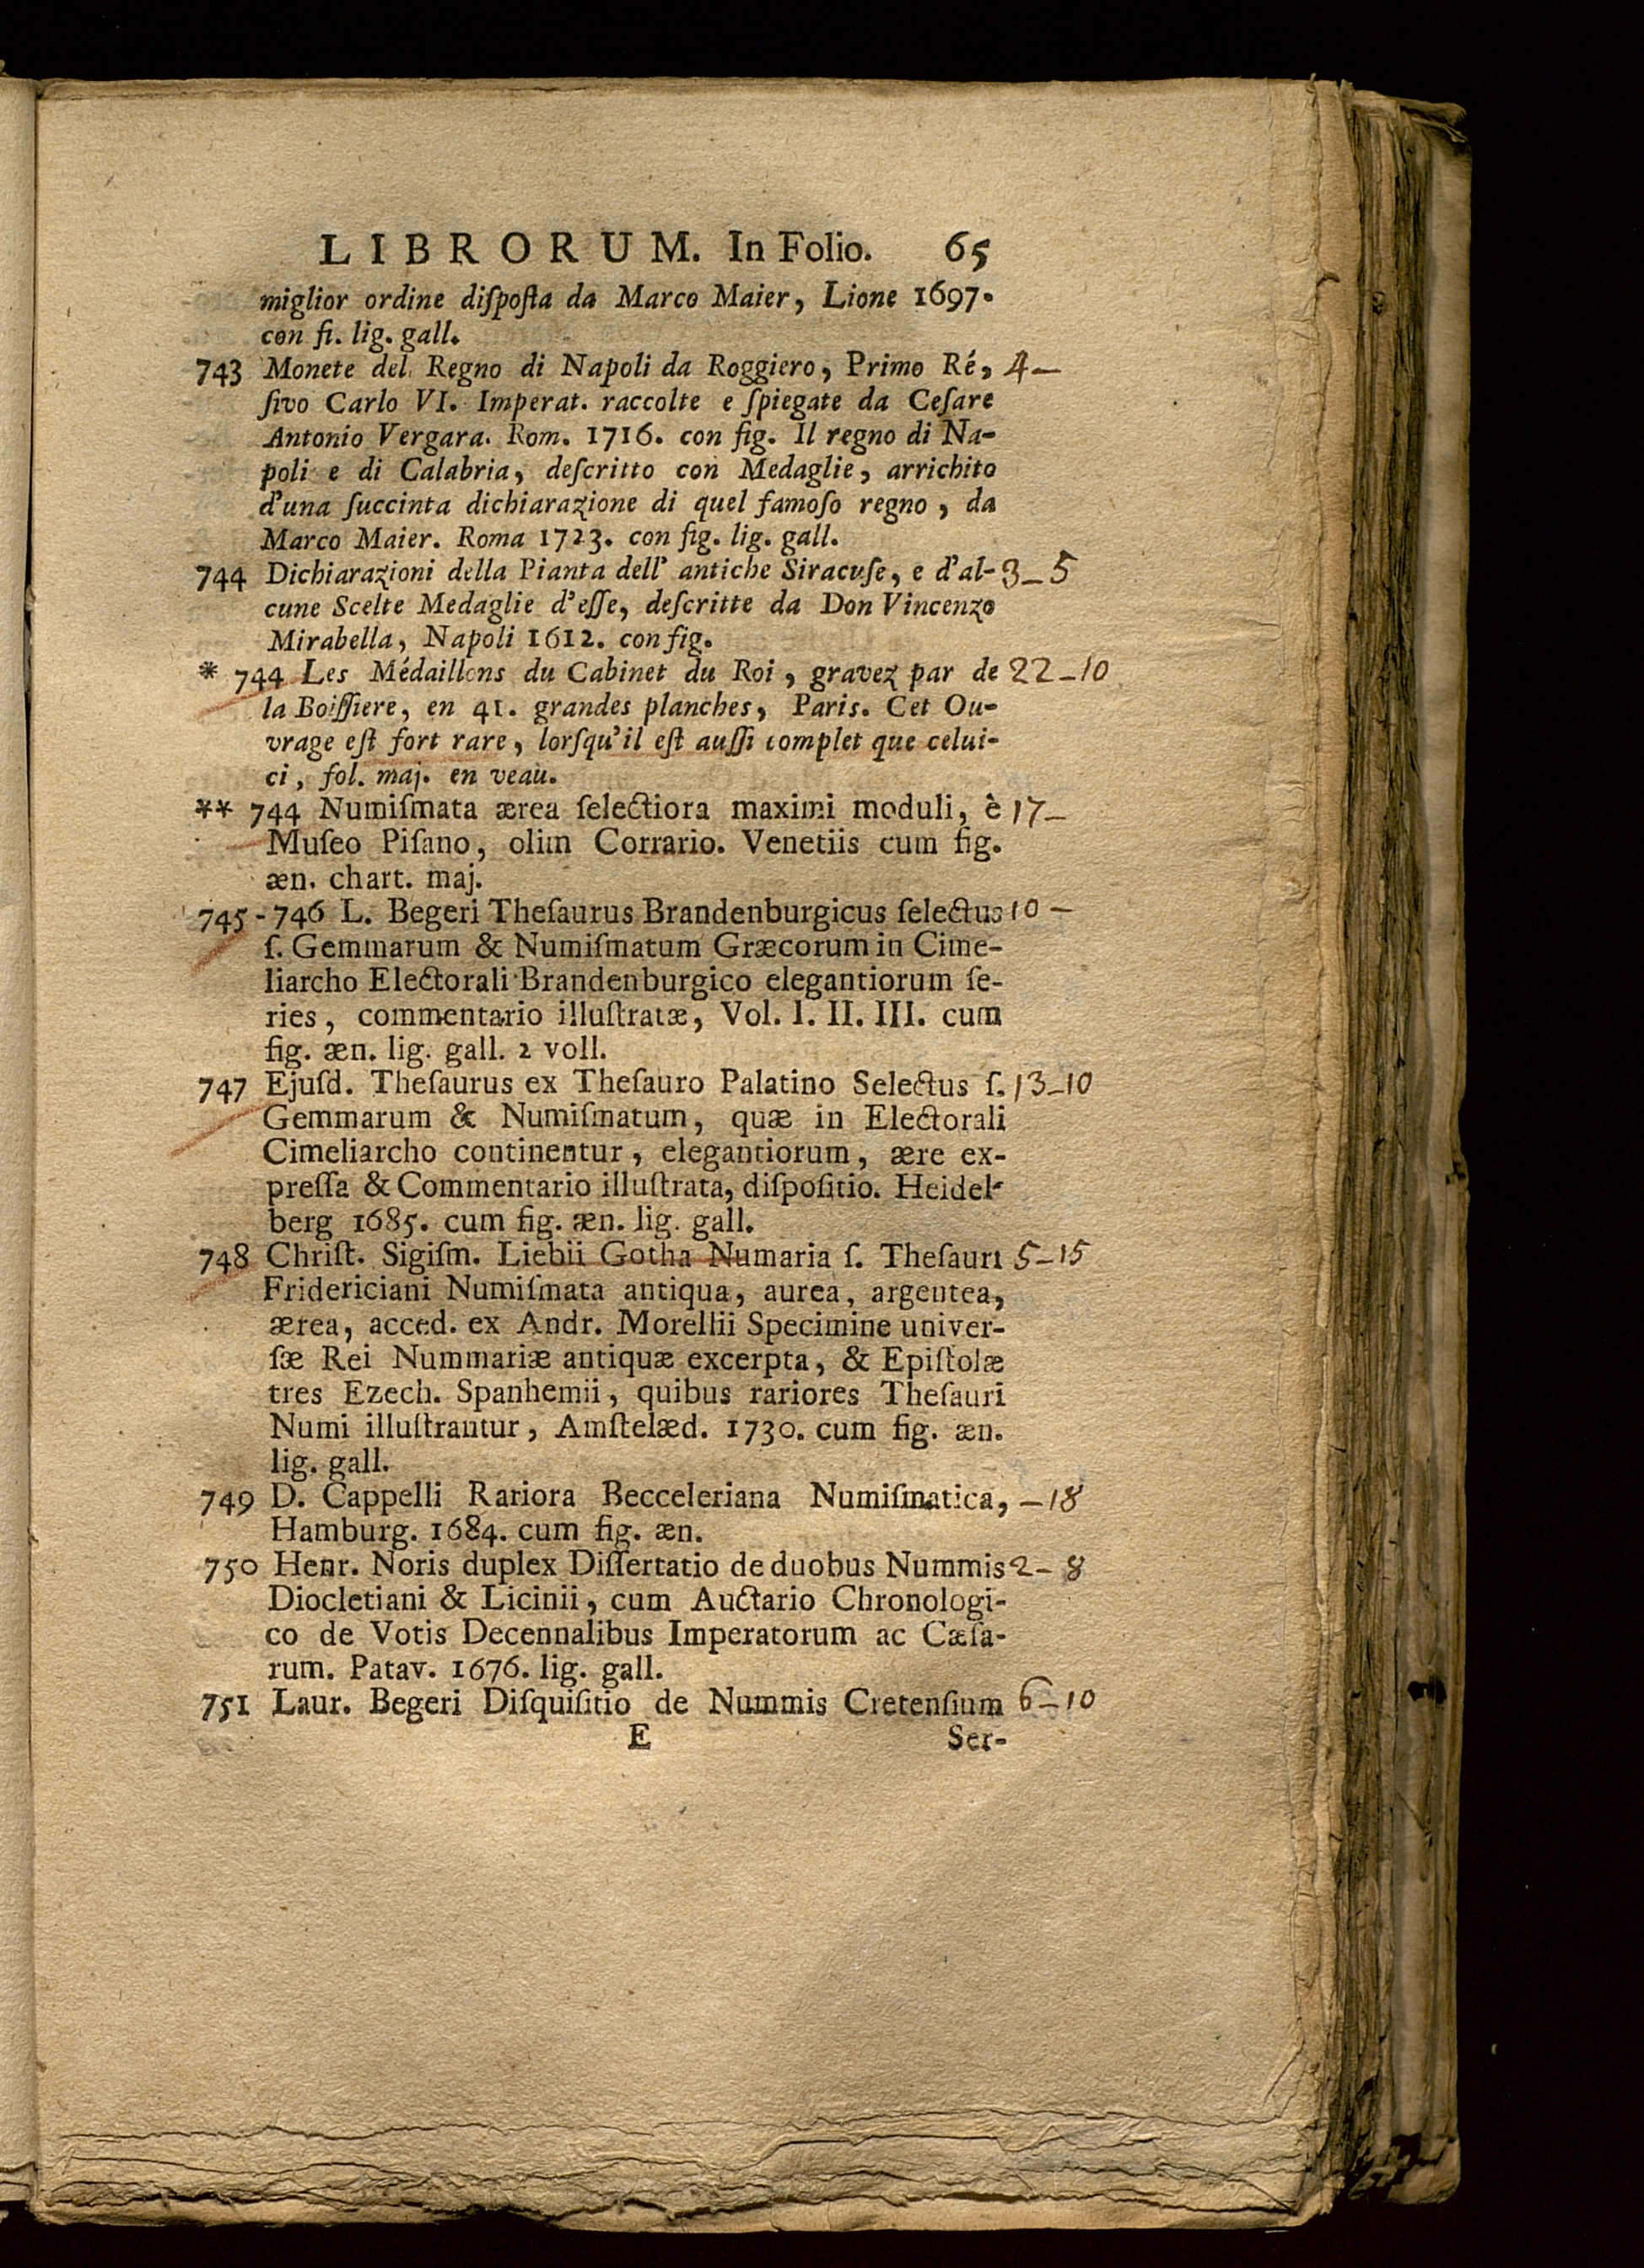 LIBRORUM. In Folio. 65
miglior ordine diſpoſta da Marco Maier, Lione 1697.
con fi. lig. gall.
743 Monete del Regno di Napoli da Roggiero, Primo Ré, 4 —
ſivo Carlo VI. Imperat. raccolte e ſpiegate da Ceſare
Antonio Vergara. Rom. 1716. con fig. Il regno di Na-
poli e di Calabria, deſcritto con Medaglie, arrichito
d'una ſuccinta dichiarazione di quel famoſo regno, da
Marco Maier. Roma 1723. con fig. lig. gall.
744 Dichiarazioni della Pianta dell' antiche Siracuſe, e d'al- 3 — 5
cune Scelte Medaglie d'eſſe, deſcritte da Don Vincenzo
Mirabella, Napoli 1612. con fig.
* 744 Les Médaillons du Cabinet du Roi, gravez par de 22 — 10
la Boiſſiere, en 41. grandes planches, Paris. Cet Ou-
vrage eſt fort rare, lorſqu'il eſt auſſi complet que celui-
ci, fol. maj. en veau.
** 744 Numiſmata ærea ſelectiora maximi moduli, è 17 —
Muſeo Piſano, olim Corrario. Venetiis cum fig.
æn. chart. maj.
745-746 L. Begeri Theſaurus Brandenburgicus ſelectus 10 —
ſ. Gemmarum & Numiſmatum Græcorum in Cime-
liarcho Electorali Brandenburgico elegantiorum ſe-
ries, commentario illuſtratæ, Vol. I. II. III. cum
fig. æn. lig. gall. 2 voll.
747 Ejuſd. Theſaurus ex Theſauro Palatino Selectus ſ. 13 — 10
Gemmarum & Numiſmatum, quæ in Electorali
Cimeliarcho continentur, elegantiorum, ære ex-
preſſa & Commentario illuſtrata, diſpoſitio. Heidel-
berg 1685. cum fig. æn. lig. gall.
748 Chriſt. Sigiſm. Liebii Gotha Numaria ſ. Theſauri 5 — 15
Fridericiani Numiſmata antiqua, aurea, argentea,
ærea, acced. ex Andr. Morellii Specimine univer-
ſæ Rei Nummariæ antiquæ excerpta, & Epiſtolæ
tres Ezech. Spanhemii, quibus rariores Theſauri
Numi illuſtrantur, Amſtelæd. 1730. cum fig. æn.
lig. gall.
749 D. Cappelli Rariora Becceleriana Numiſmatica, — 18
Hamburg. 1684. cum fig. æn.
750 Henr. Noris duplex Diſſertatio de duobus Nummis 2 — 8
Diocletiani & Licinii, cum Auctario Chronologi-
co de Votis Decennalibus Imperatorum ac Cæſa-
rum. Patav. 1676. lig. gall.
751 Laur. Begeri Diſquiſitio de Nummis Cretenſium 6 — 10
E Ser-